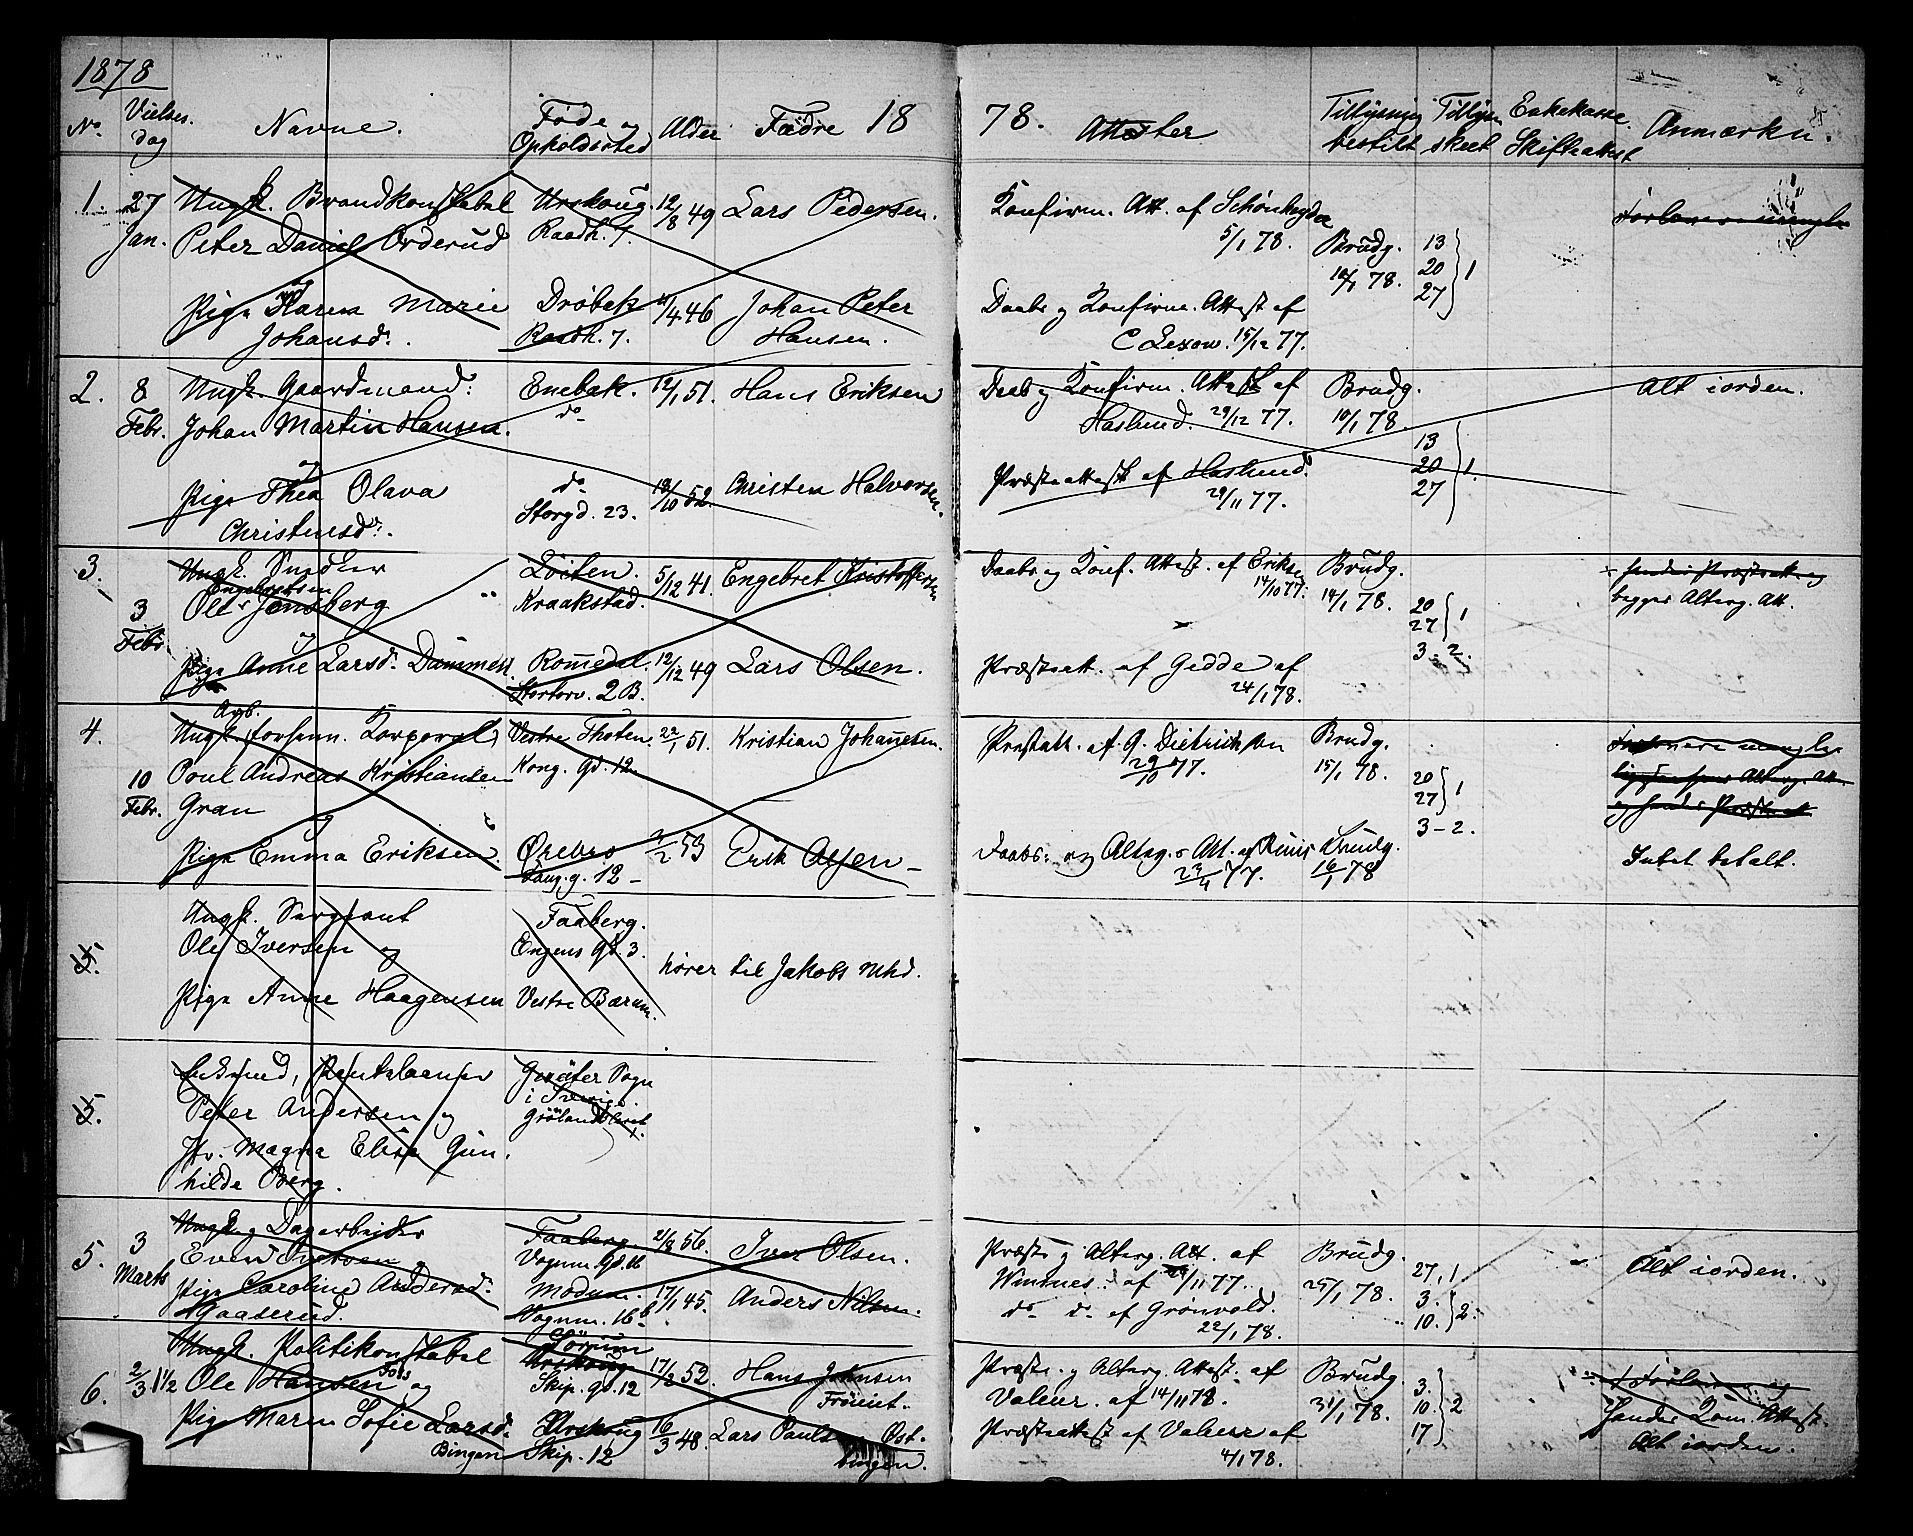 1878
No. Vielses. dag Navne. Føde og Opholdssted Alder Fædre 18
78. Attester Tillysning bestilt Tillysn skeet Enkekasse. Skifteattest Anmærkn.
1. 27 Jan.
Ungk. Brandkonstabel
Peter Daniel Orderud
og
Pige Karen Marie
Johansd.
Urskoug.
Raadh. 7.
Drøbak
Raadh. 7.
12/8 49
/4 46
Lars Pedersen.
Johan Peter
Hansen.
Konfirm. Att. af Schønheyder
5/1 78.
Daabs og Konfirm. Attest af
C Lexow. 15/12 77.
Brudg.
10/1 78.
13
20
27 } 1
2. 8 Febr.
Ungk. Gaardmand:
Johan Martin Hansen.
og
Pige Thea Olava
Christensd.
Enebak.
do
do
Storgd. 23.
12/1 51.
18/10 52.
Hans Eriksen
Christen Halvorsen.
Daabs og Konfirm. Attest af
Haslund. 29/12 77.
Præsteattest af Haslund.
29/11 77.
Brudg.
10/1 78.
13
20
27 } 1.
Alt iorden.
3. 3 Febr.
Ungk. Snedker
Engebretsen
Ole Jønsberg
og
Pige Anne Larsd. Dammen.
Løiten.
Kraakstad.
Romedal.
Stortorv. 2 B.
5/12 41.
12/12 49
Engebret Kristoffersen
Lars Olsen.
Daabs og Konf. Attest. af Eriksen
14/10 77.
Præsteatt. af Gedde af
24/1 78.
Brudg.
14/1 78.
20
27 } 1
3 - 2.
hendes Præsteatt. og
begges Alterg. Att.
4. 10 Febr.
Arb.
Ungk. forhenn. Korporal
Poul Andreas Kristiansen
Gran
og
Pige Emma Eriksen.
Vestre Thoten.
Kong. gd. 12.
Ørebro
Kong. g. 12 -
22/1 51.
/2 53
Kristian Johannesen.
Erik Olsen -
Prestatt. af G. Dietrichson
29/10 77.
Daabs: og Alterg. Att. af
23/4 77.
Brudg.
15/1 78.
Brudg.
16/1 78
20
27 } 1
3 - 2.
Forlovere mangler
og hendes Præsteatt
Intet betalt.
5.
Ungk. Sergeant
Ole Iversen og
Pige Anne Haagensen
Faaberg.
Engens Gd. 3.
Vestre Bærum.
hører til Jakobs Mhd.
5.
Enkemd,
Peter Andersen og
Jfr. Magna Elise Gun
hilde Berg.
Sogn
i Sverige.
Grølandsleret.
5. 3 Marts
Ungk. og Dagarbeider
Even Iversen
Pige Caroline Andersd.
Gaaserud.
Faaberg.
Vognm. Gd. 16
Modum.
Vognm. 16
2/8 56.
17/1 45.
Iver Olsen.
Anders Nilsen.
Præste og Alterg. Att. af
Wimmes. af /11 77.
do do af Grønvold.
22/1 78.
Brudg.
25/1 78.
27, 1
3.
10. } 2.
Alt iorden.
6. 2/3 1½
Ungk. Politikonstabel
Ole Hansen og
Pige Maren Sofie Larsd.
Bingen
Sørum
Urskoug
Skip. gd. 12
Urskoug
Skip. 12
17/2 52.
16/3 48.
Hans Johnsen
Frøieit.
Lars Pauls Øst.
bingen.
Præste. og Alterg. Attest. af
Valeur. af 14/11 78.
Præsteattest af Valeur af
4/1 78.
Brudg.
31/1 78.
3.
10.
17 } 2
Forlovere og
Hendes Kom. Attest.
Alt iorden.